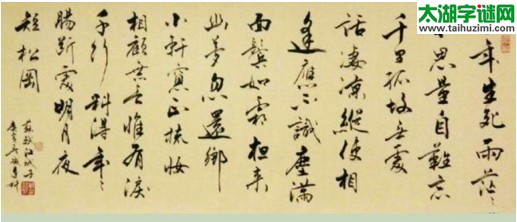 太湖字谜网
http://www.taihuzimi.com
年生死兩茫〻
思量自難忘
千里孤坟無處
話凄涼縱使相
逢應不識塵滿
面鬢如霜夜来
幽夢忽還鄉
小軒窗正梳妝
相顧無言惟有淚
千行料得年〻
腸斷處明月夜
短松岡
蘇軾江城子